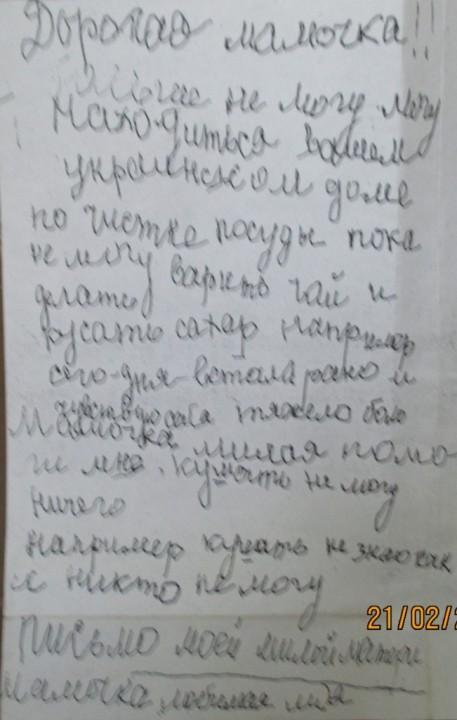 Дорогая мамочка!!
не могу могу
находиться вашем
украинском доме
по чистке посуды пока
не могу варить чай и
делать
кусать сахар например
сего-дня встала рано и
тяжело было
Мамочка милая помо-
ги мне. Кушать не могу
ничего
например кушать не знаю как
и никто не могу
21/02/2
Письмо моей милой матери
Мамочка любимая